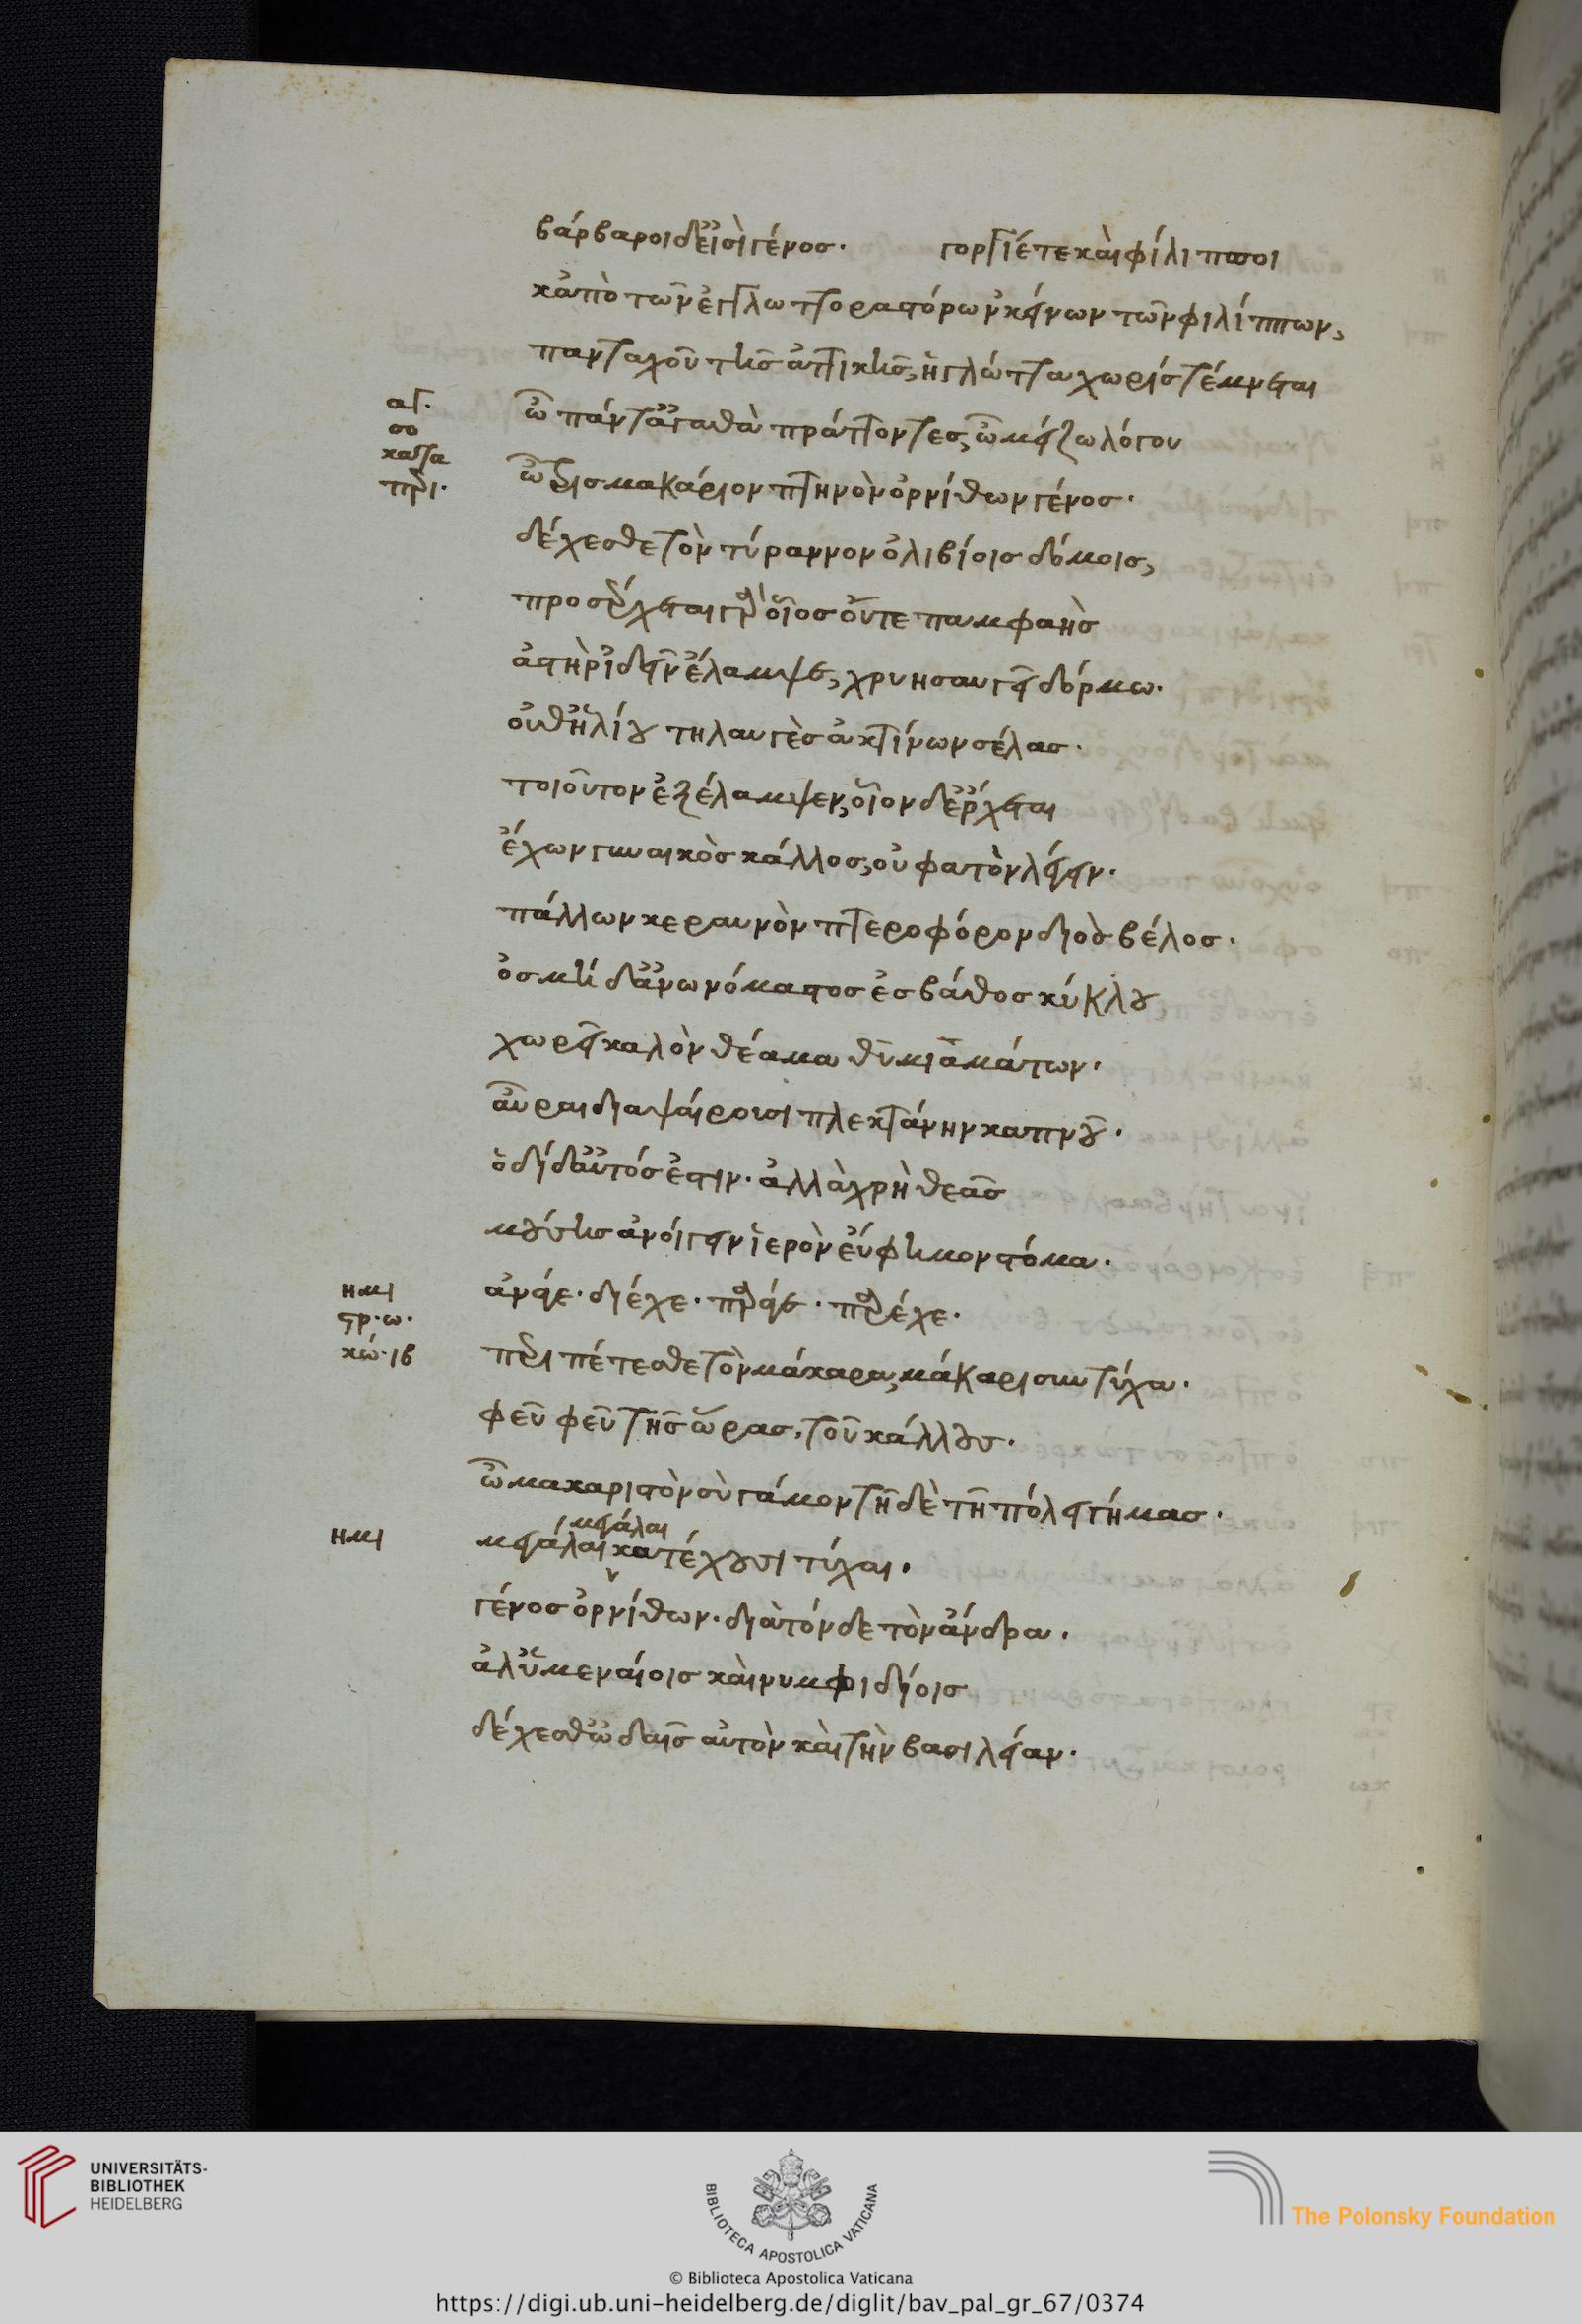 βάρβαροι δ' εἰσὶ γένος· γοργίέ τε καὶ φίλιπποι
κἀπὸ τῶν ἐγγλωττογαστόρων κείνων τῶν φιλίππων,
πανταχοῦ τῆς ἀττικῆς, ἡ γλῶττα χωρὶς τέμνεται
αγ· ὦ πάντ' ἀγαθὰ πράττοντες, ὦ μείζω λόγου
σο
κατα
περι· ὦ τρισμακάριον πτηνὸν ὀρνίθων γένος·
δέχεσθε τὸν τύραννον ὀλβίοις δόμοις,
προσέρχεται γὰρ οἷος οὔτε παμφαὴς
ἀστὴρ ἰδεῖν ἔλαμψε, χρυησαυγεῖ δόρμω·
οὐθ' ἡλίου τηλαυγὲς ἀκτίνων σέλας·
τοιοῦτον ἐξέλαμψεν, οἷον δ' ἔρχεται
ἔχων γυναικὸς κάλλος, οὐ φατὸν λέγειν·
πάλλων κεραυνὸν πτεροφόρον διὸς βέλος·
ὀσμὴ δ' ἀνωνόμαστος ἐς βάθος κύκλου
χωρεῖ καλὸν θέαμα θυμιαμάτων·
αὖραι διαψαίρουσι πλεκτάνην καπνοῦ·
ὁδὶ δ' αὐτός ἐστιν· ἀλλὰ χρὴ θεᾶς
μούσης ἀνοίγειν ἱερὸν εὔφημον στόμα·
ημι ἄναγε· δίεχε· πάραγε· πάρεχε·
στρ· ω·
χω· ιβ περιπέτεσθε τὸν μάκαρα, μάκαρι σὺν τύχα·
φεῦ φεῦ τῆς ὥρας· τοῦ κάλλους·
ὦ μακαριστὸν σὺ γάμον τῇδε τῇ πόλει γήμας·
μεγάλαι
ημι μεγάλαι κατέχουσι τύχαι·
γένος ὀρνίθων· διὰ τόνδε τὸν ἄνδρα·
ἀλλ' ὑμεναίοις καὶ νυμφιδίοις
δέχεσθ' ὠδαῖς αὐτὸν καὶ τὴν βασιλείαν·
UNIVERSITÄTS-
BIBLIOTHEK
HEIDELBERG
BIBLIOTECA APOSTOLICA VATICANA
The Polonsky Foundation
© Biblioteca Apostolica Vaticana
https://digi.ub.uni-heidelberg.de/diglit/bav_pal_gr_67/0374